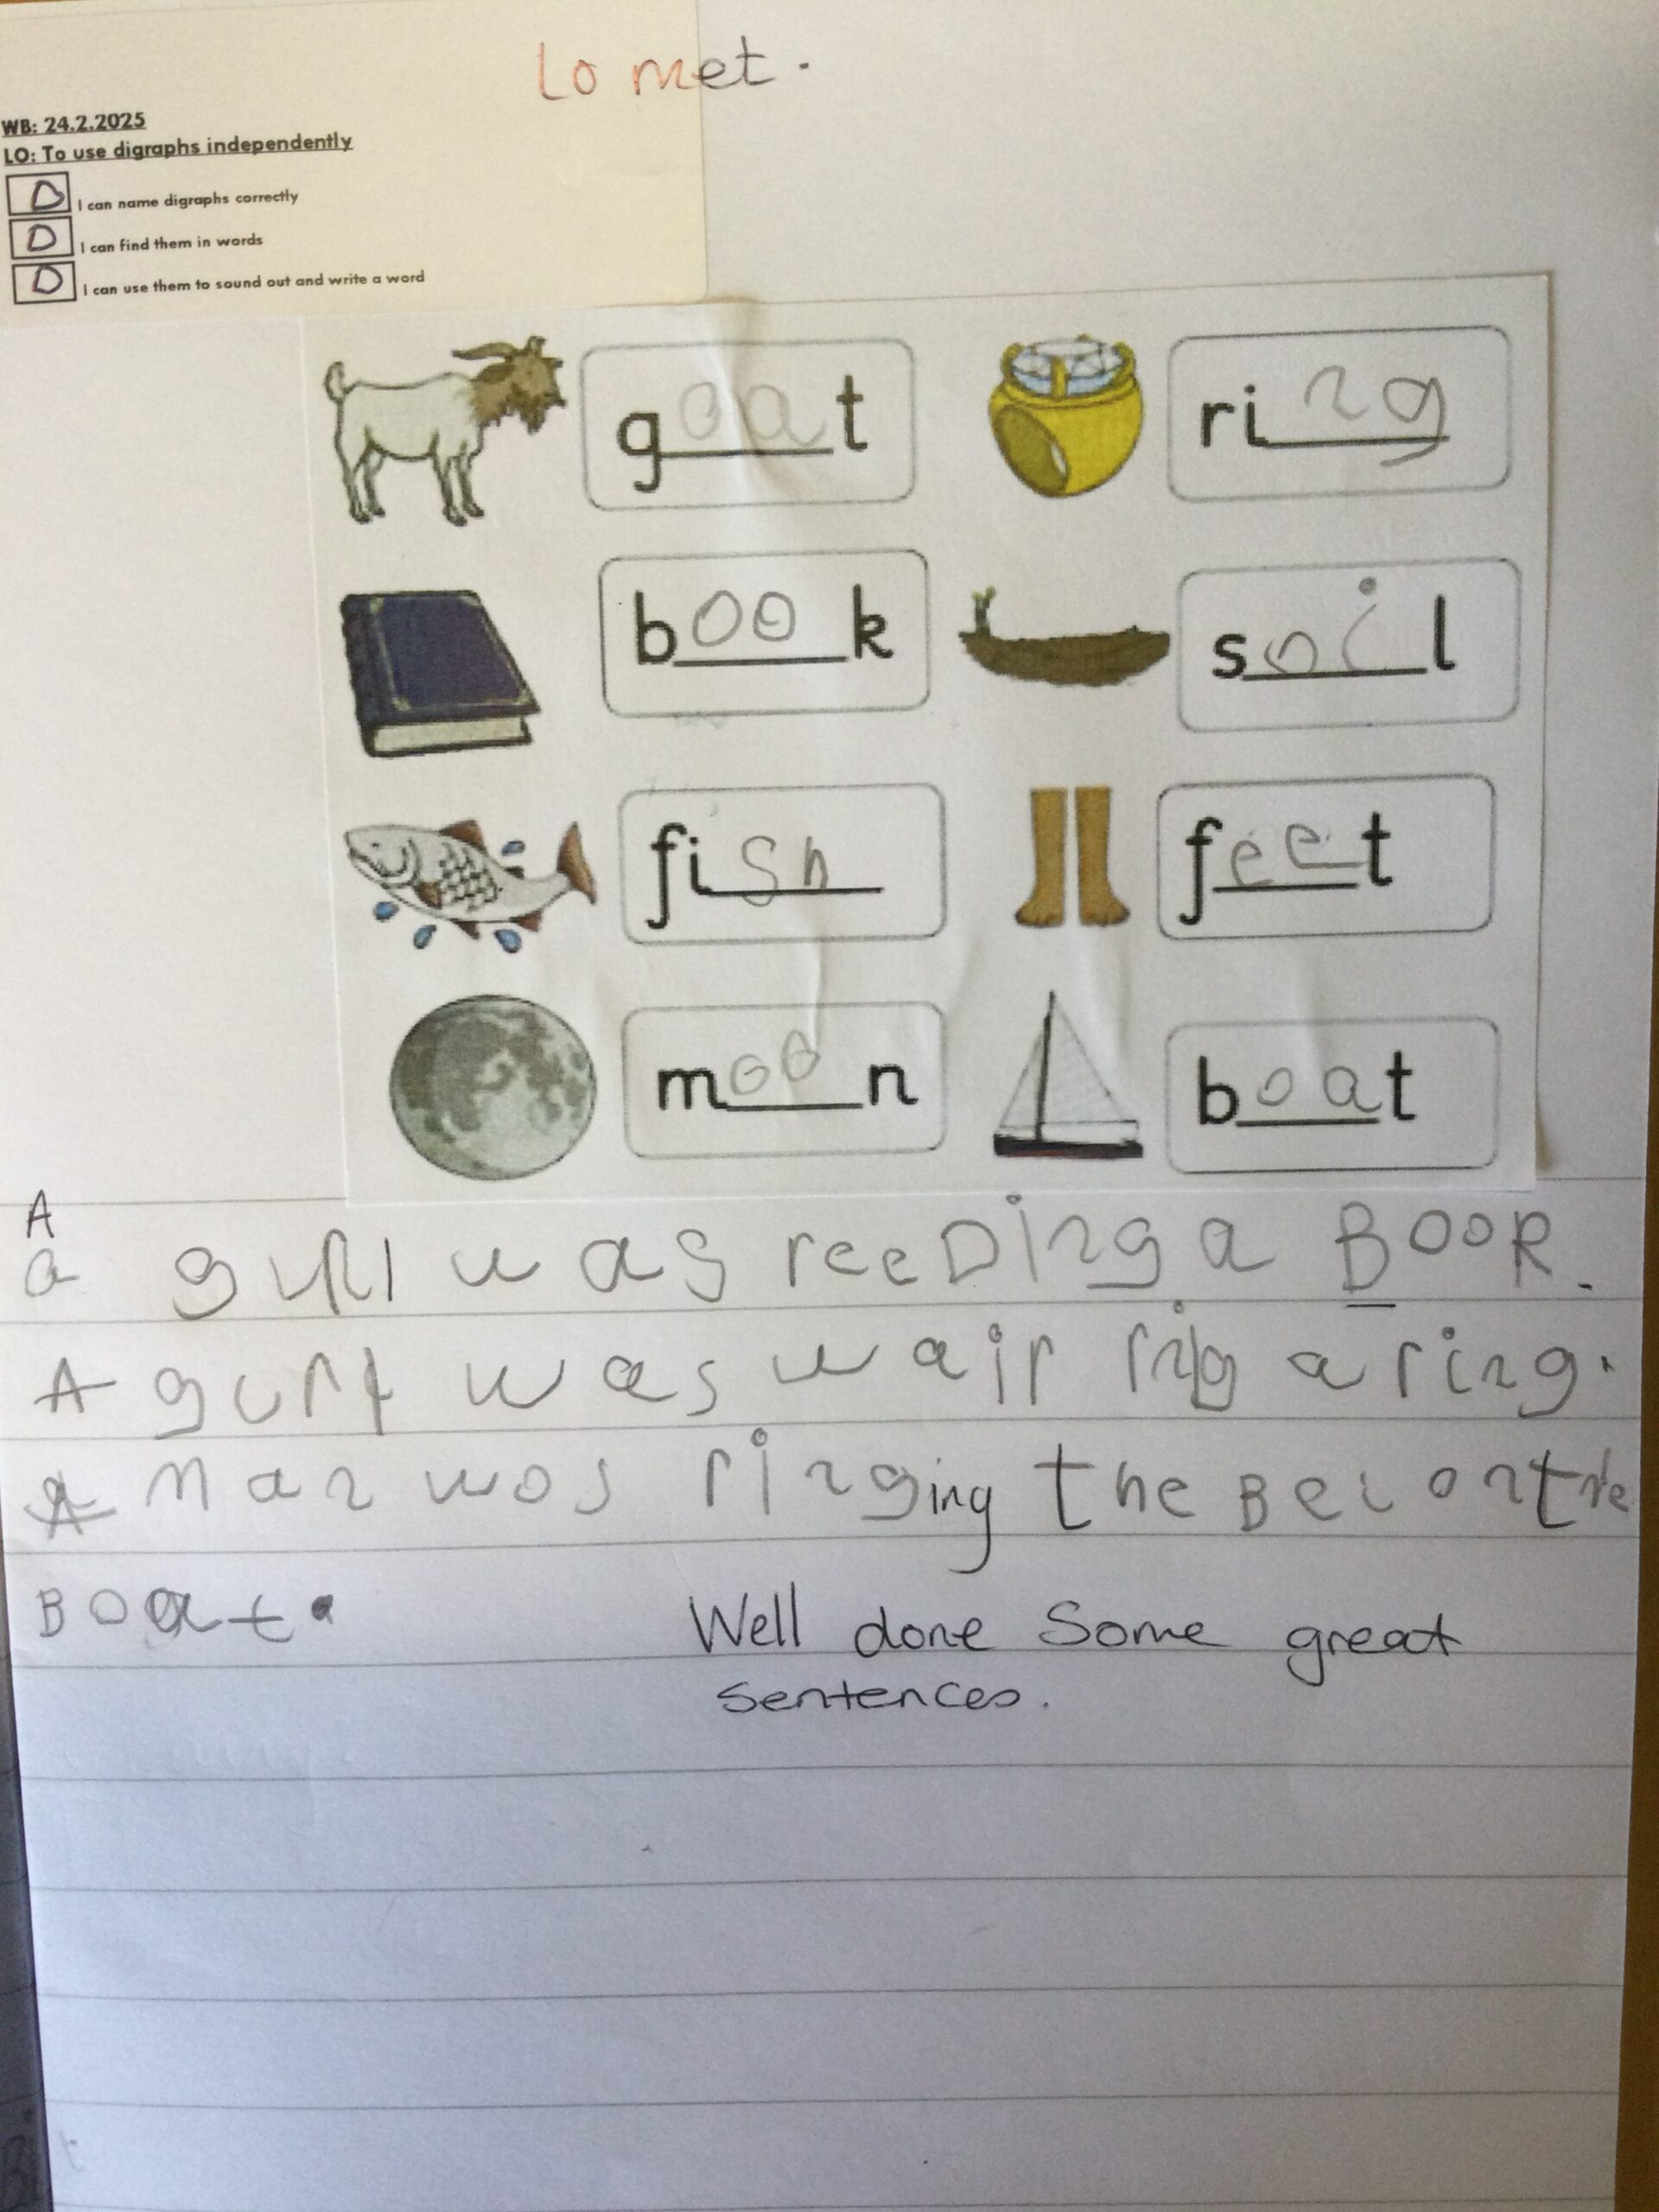 Lo met.
WB: 24.2.2025
LO: To use digraphs independently
I can name digraphs correctly
I can find them in words
I can use them to sound out and write a word
goat
ring
book
soil
fish
feet
moon
boat
A
a gurl was reeDing a BooK.
A gurl was wair ring a ring.
A man wos ringing the Bel on the
Boat.
Well done Some great
sentences.